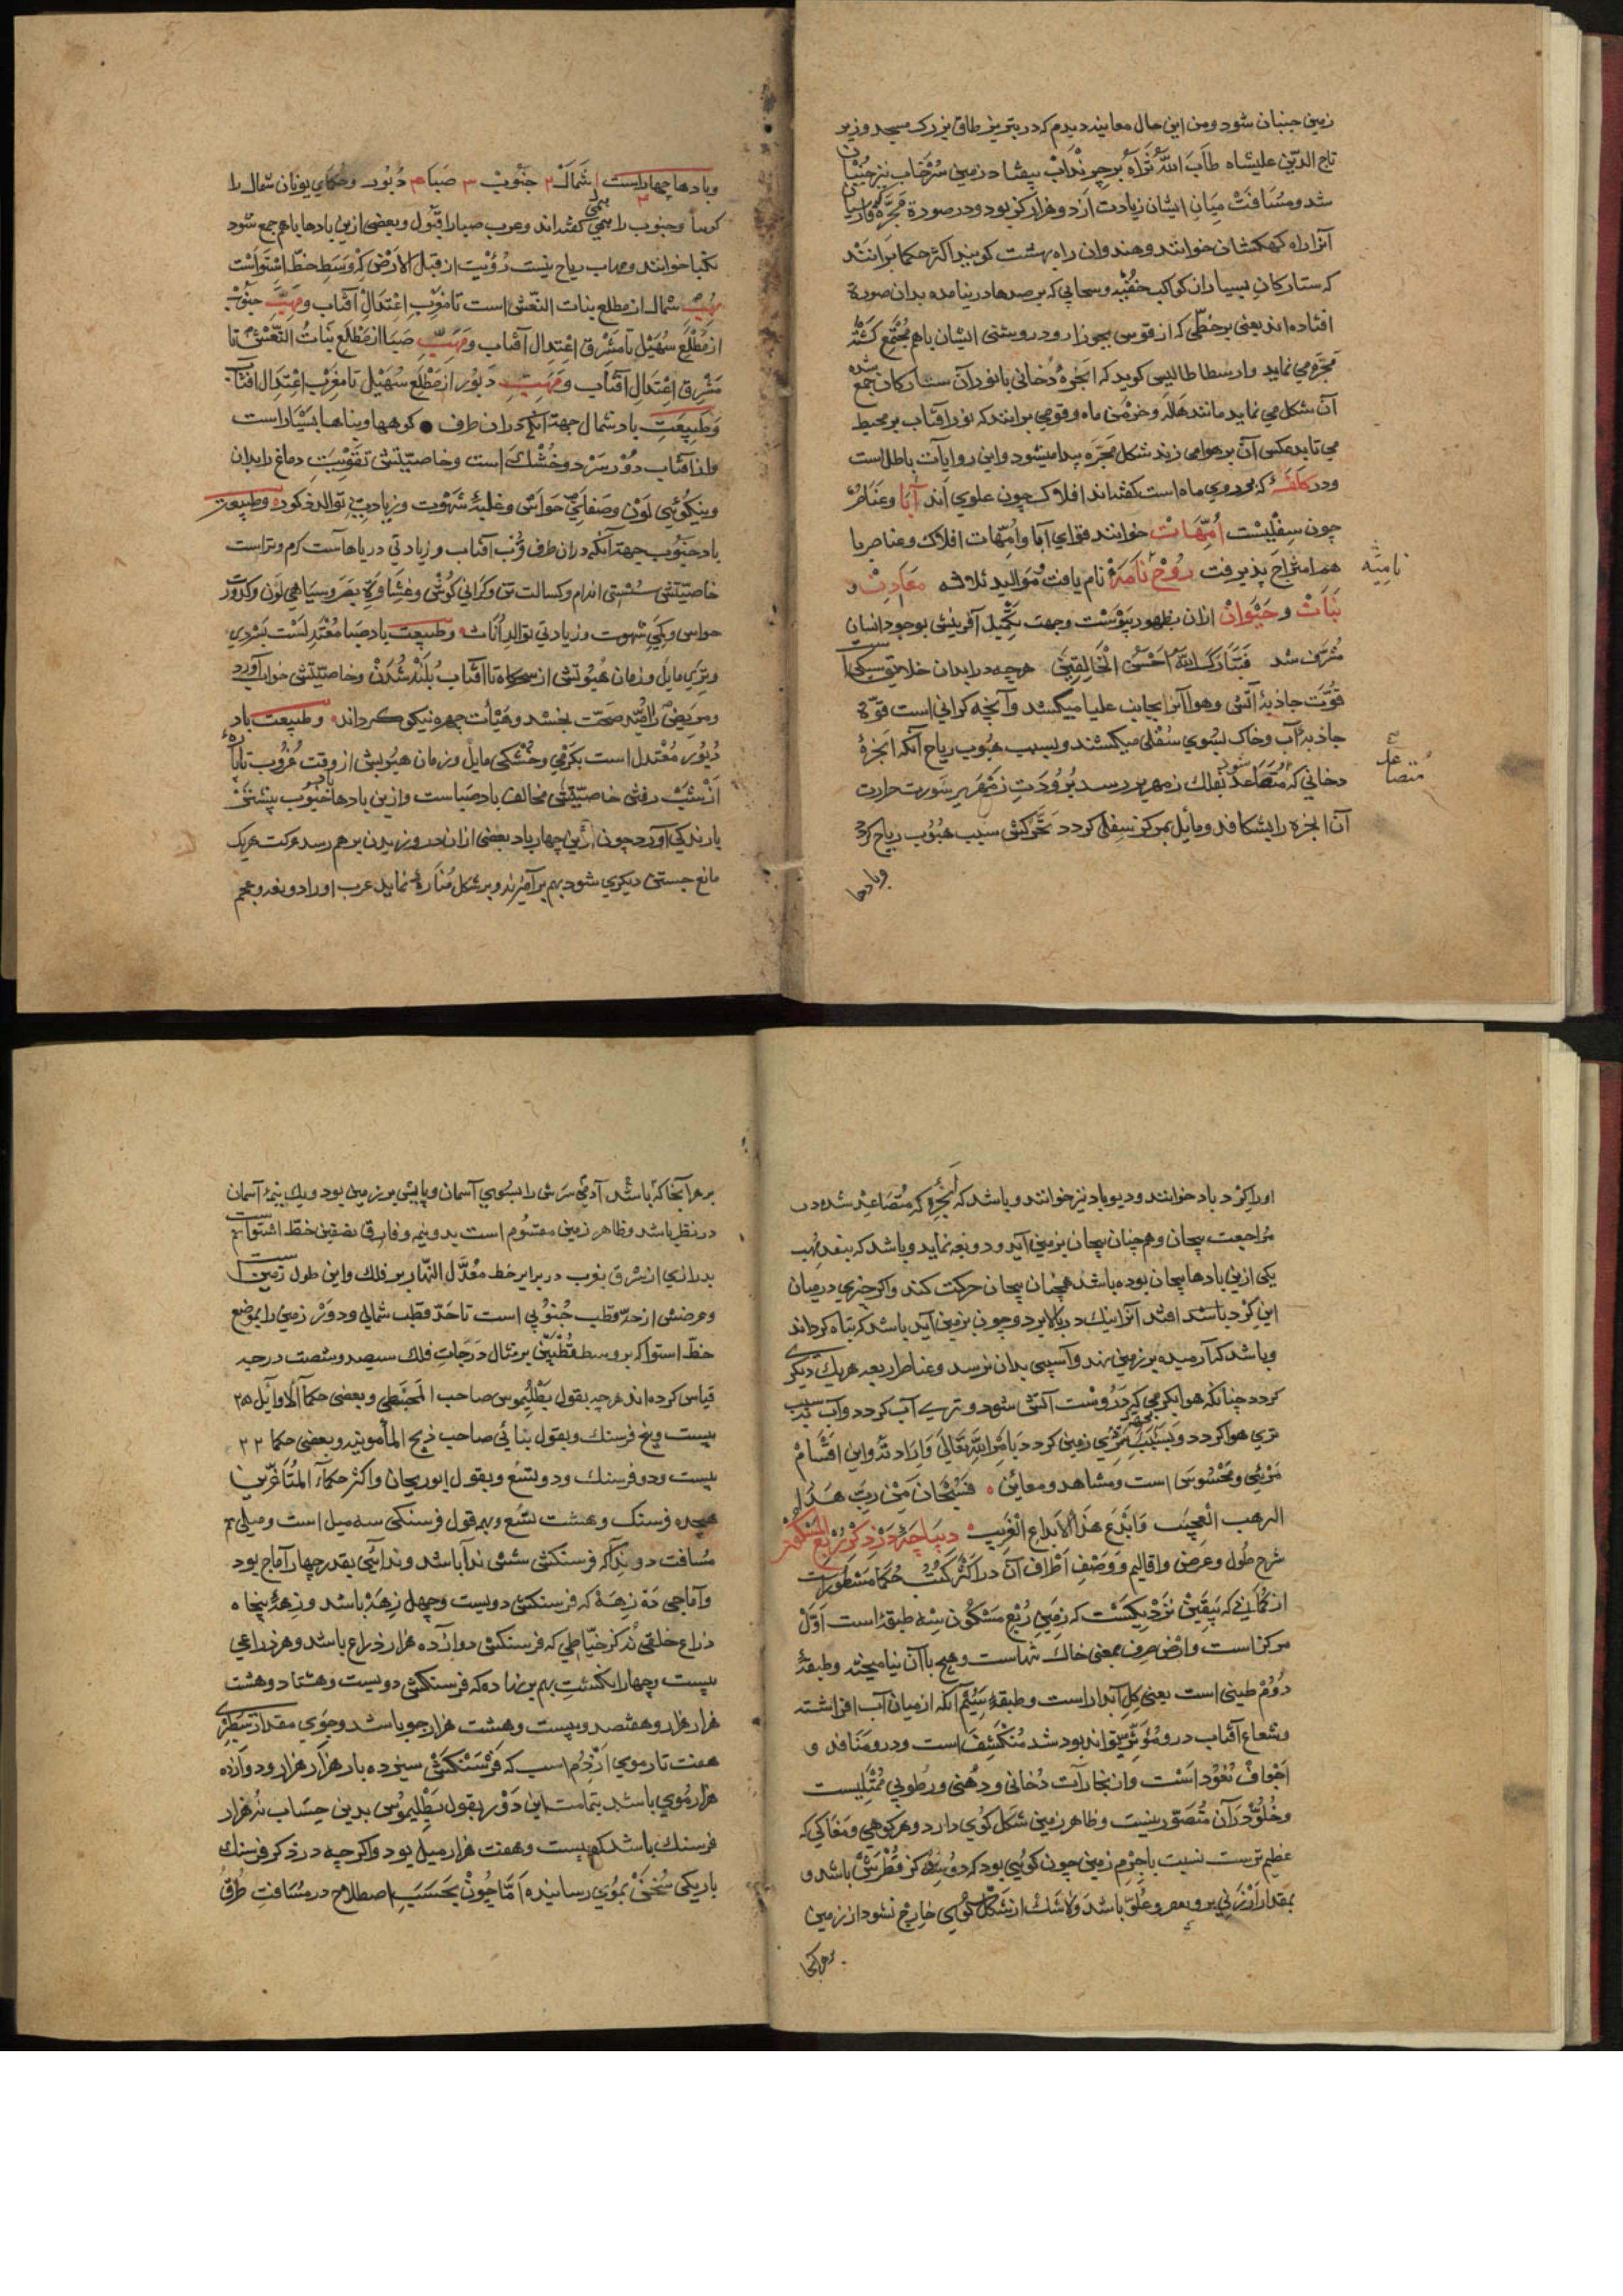 زمین جنبان شود و من این حال معاینه دیدم که در تبریز طاق بزرک مسجد وزیر
تاج الدین علیشاه طاب الله ثراه برجرنداب بیفتاد زمین سرخاب نیز جنبان
شد و مسافت میان ایشان زیادت از دو هزار کز بود و در صورة مجره که فارسیان
آنرا راه کهکشان خوانند و هندوان راه بهشت کویند اکثر حکما برانند
که ستارکان بسیار از کواکب خفیه و سحابی که برصدها در نیامده بدان صورة
افتاده اند یعنی برخطی که از قوس بجوزا رود روشنی ایشان باهم مجتمع کشته
مجره می نماید وارسطاطالیس کوید که ابخرهٔ دخانی با نور آن ستارکان جمع شده
آن شکل می نماید مانند هاله و خرمن ماه و قومی برانند که نور آفتاب بر محیط
می تابد عکس آن بر هوا می زند شکل مجره پیدا میشود و این روایات باطل است
ودر کلفهٔ که بر روی ماه است کفته اند افلاک چون علوی اند آبا و عناصر
چون سفلیست امهات خوانند قوای آبا و امهات افلاک و عناصر با
هم امتزاج پذیرفت روح نامیه نام یافت و موالید ثلاثه معادن و
نبات و حیوان ازان بظهور پیوست وجهت تکمیل آفرینش بوجود انسان
مشرف شد فتبارک الله احسن الخالقین هرچه در ابدان خلایق سبکی است
قوت جاذبهٔ آتش و هوا آنرا بجانب علیا میکشد و آنچه کرانی است قوة
جاذبهٔ آب و خاک بسوی سفلی میکشند و بسبب هبوب ریاح آنکه ابخرهٔ
دخانی که متصاعد شود بفلک زمهریر رسد برودت زمهریر سورت حرارت
آن ابخره را بشکافد و مایل بمرکز سفلی کردد تحرکش سبب هبوب ریاح کردد
وبادها
نامیه
متصاعد صح
وبادها چهار است ۱ شمال ۲ جنوب ۳ صبا ۴ دبور و حکمای یونان شمال را
کوسا و جنوب را یمنی کفته اند و عرب صبا را قبول و بعضی ازین بادها باهم جمع شود
نکبا خوانند و مهاب ریاح بنسبت رؤیت از قبل الارض که وسط خط استواست
مهب شمال از مطلع بنات النعش است تا مغرب اعتدال آفتاب و مهب جنوب
از مطلع سهیل تا مشرق اعتدال آفتاب و مهب صبا از مطلع بنات النعش تا
مشرق اعتدال آفتاب و مهب دبور از مطلع سهیل تا مغرب اعتدال آفتاب
وطبیعت باد شمال جهة آنکه دران طرف کوهها و بناها بسیار است
واز آفتاب دور سرد و خشک است و خاصیتش تقویت دماغ و ابدان
ونیکویی لون و صفای حواس و غلبهٔ شهوت و زیادتی توالد ذکور وطبیعت
باد جنوب جهة آنکه دران طرف قرب آفتاب و زیادتی دریاهاست کرم و تر است
خاصیتش سستی اندام و کسالت تن و کرانی کوش و غشاوة بصر و سیاهی لون و کدورت
حواس و کمی شهوت و زیادتی توالد اناث وطبیعت باد صبا معتدلست بسردی
وتری مایل و زمان هبوبش از سحرکاه تا آفتاب بلند شدن و خاصیتش خواب آورد
ومریض را امید صحت بخشد و هیأت چهره نیکو کرداند وطبیعت باد
دبور معتدل است بکرمی و خشکی مایل و زمان هبوبش از وقت غروب تا پاره
از شب رفتن خاصیتش مخالف باد صباست وازین بادها باد جنوب بیشتر
بارندکی آورد چون ازین چهار باد بعضی ازان در وزیدن برهم رسد حرکت هریک
مانع جستن دیکری شود بهم برآمیزند و بر شکل منارهٔ نماید عرب اورا زوبعه و عجم
اورا کرد باد خوانند و دیو باد نیز خوانند و باشد که ابخره که متصاعد شده در
مراجعت پیچان و همچنان پیچان بزمین آید و زوبعه نماید و باشد که بنفسه مهب
یکی ازین بادها پیچان بوده باشد همچنان پیچان حرکت کند و اکر چیزی در میان
این کرد باد افتد آنرا نیک در بالا برد و چون بزمین آید باشد که تباه کرداند
وباشد که آرمیده بر زمین نهد و آسیبی بدان نرسد و عناصر اربعه هریک دیکری
کردد چنانکه هوا بکرمی که دروست آتش شود و بتری آب کردد و آب بسبب
تری هوا کردد و بسبب سردی زمین کردد بامر الله تعالی و ارادته و این اقسام
مرئی و محسوس است و مشاهد و معاین فسبحان من رتب هذا
الرهب العجیب وابدع هذا الابداع الغریب دیباجه در ذکر ربع المسکون
شرح طول و عرض و اقالیم و وصف اطراف آن در اکثر کتب حکما مسطور است
از کمانی که بیقین نزدیکست که زمین ربع مسکون سه طبقه است اول
مرکز است وارض صرف بمعنی خاک تنهاست و هیچ با آن نیامیخته و طبقهٔ
دوم طینی است یعنی کل آبدار است و طبقهٔ سیم آنکه از میان آب افراشته
وشعاع آفتاب درو مؤثر تواند بود شد منکشف است و درو منافذ و
اجواف نفوذ است واز بخارات دخانی و دهنی و رطوبی ممتلیست
وخلو در آن متصور نیست و ظاهر زمین شکل کوی دارد و هر کوهی و مغاکی که
عظیم ترست نسبت با جرم زمین چون کویی بود که دو سه کز قطرش باشد و
بمقدار ارزنی برو بعمر و علو باشد ولاشک از شکل کوی خارج نشود از زمین
برهرآنجا
برهرآنجا که باشد آدمی سرش را بسوی آسمان و پایش بر زمین بود و یک نیمهٔ آسمان
در نظر باشد و ظاهر زمین مقسوم است بدو نیم و فارق نصفین خط استواست
بدرازی از شرق بغرب در برابر خط معدل النهار بر فلک و این طول زمین است
وعرضش از حد قطب جنوبی است تا حد قطب شمالی و دور زمین را بموضع
خط استوا که بر وسط قطبین بر مثال درجات فلک سیصد و شصت درجه
قیاس کرده اند هر درجه بقول بطلیموس صاحب المجسطی و بعضی حکماء الاوایل ۲۵
بیست و پنج فرسنک و بقول بنائی صاحب زیج المأمونیه و بعضی حکما ۲۲
بیست و دو فرسنک و دو تسع و بقول ابوریحان و اکثر حکماء المتأخرین
هجده فرسنک و هشت تسع و بهر قول فرسنکی سه میل است و میلی
مسافت دو ندا که فرسنکش شش ندا باشد و ندائی بقدر چهار آماج بود
وآماجی ده زهه که فرسنکش دویست و چهل زهه باشد و زههٔ پنجاه
ذراع خلقی نه کز خیاطی که فرسنکش دوازده هزار ذراع باشد و هر ذراعی
بیست و چهار انکشت بهم بر نهاده که فرسنکش دویست و هشتاد و هشت
هزار هزار و هفتصد و بیست و هشت هزار جو باشد و جوی مقدار سطبری
هفت تار موی از دم اسب که فرسنکش سیزده بار هزار هزار و دوازده
هزار موی باشد بتمامت این دور بقول بطلیموس بدین حساب نه هزار
فرسنک باشد که بیست و هفت هزار میل بود و اکر چه در ذکر فرسنک
باریکی سخن بموی رسانیده اما چون بحسب اصطلاح در مسافت طرق